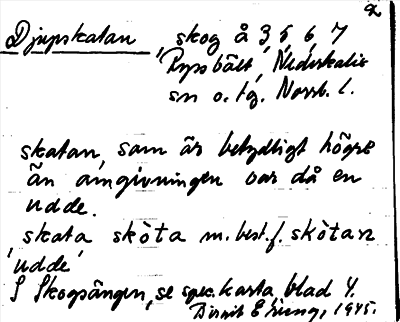 2
Djupskatan, skog å 3, 5, 6, 7
Rysbält, Nederkalix
sn o. tg. Norrb. l.
skatan, som är betydligt högre
än omgivningen var då en
udde.
skata skòta m. best. f. skòtan
'udde'
S Skogsängen, se spec. karta blad 4.
Birgit 1945.